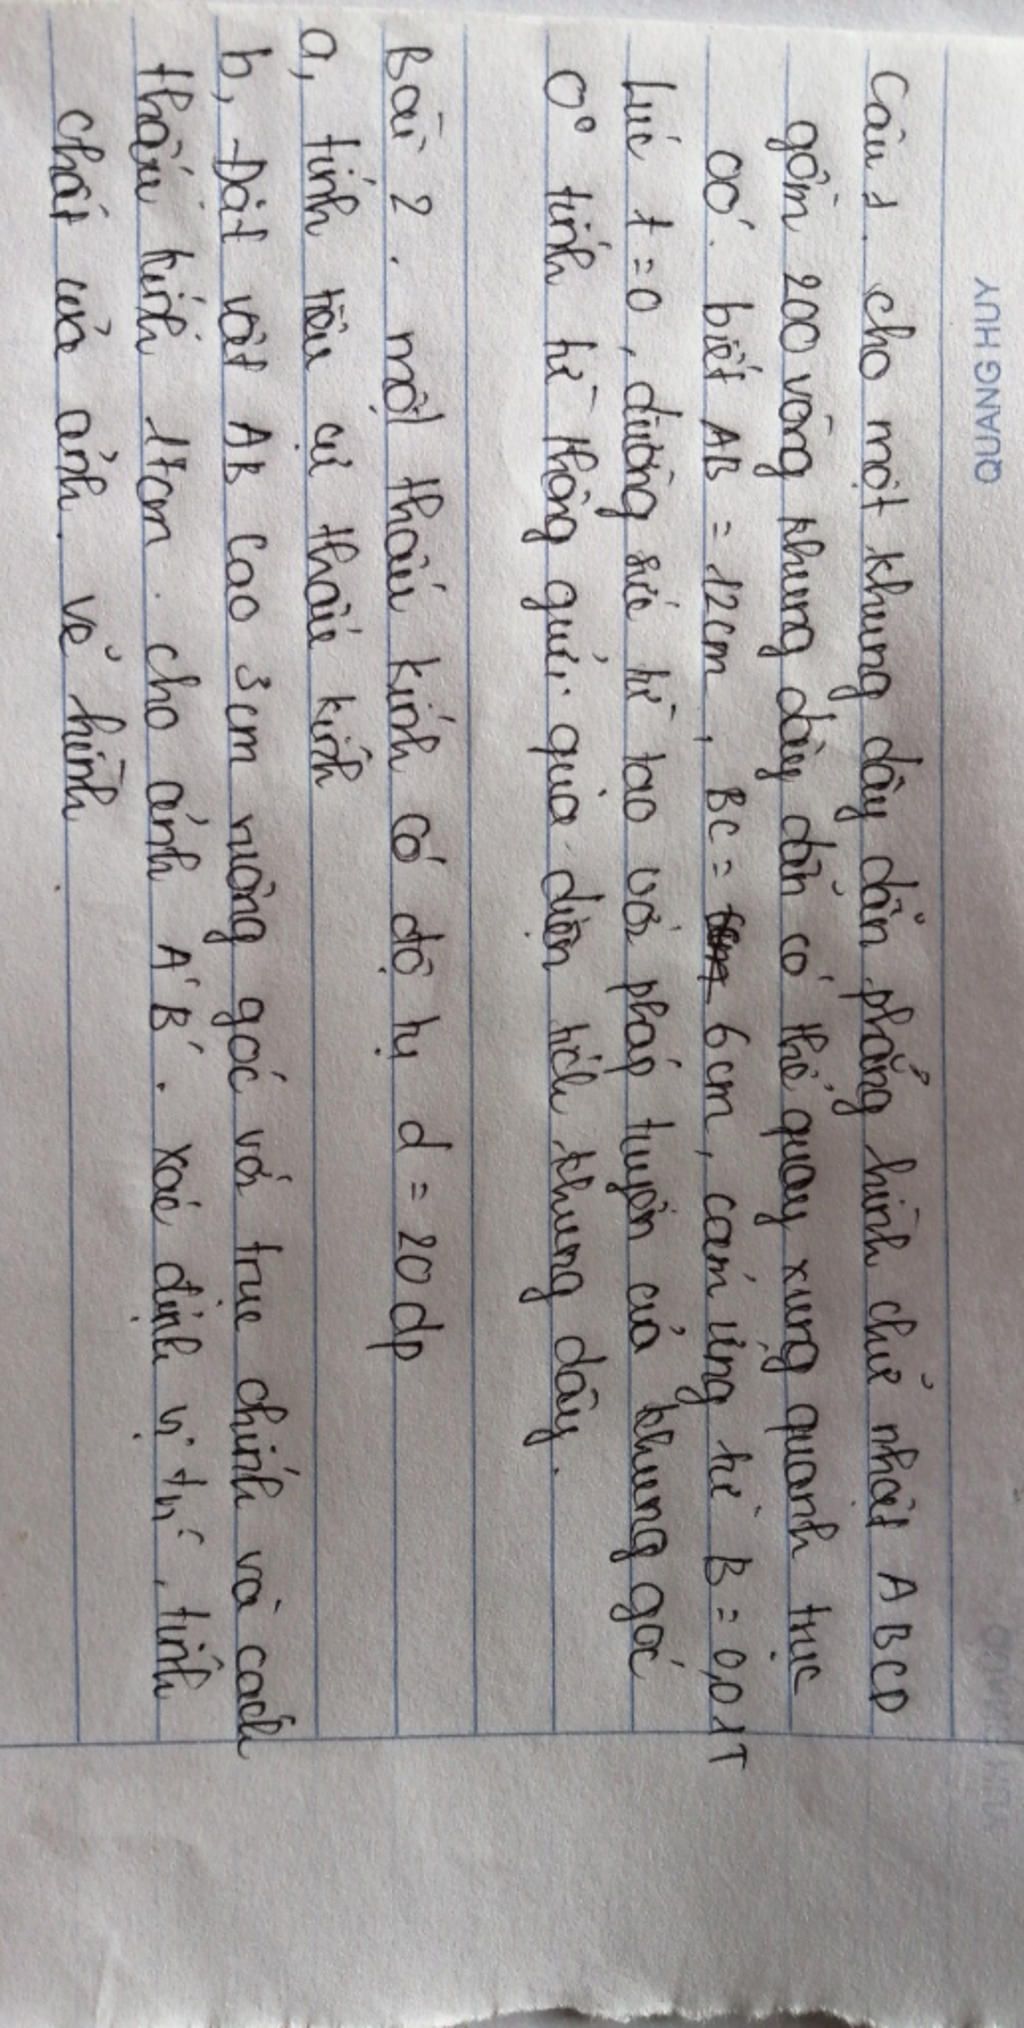 QUANG HUY
Câu 1. cho một khung dây dẫn phẳng hình chữ nhật ABCD
gồm 200 vòng khung dây dẫn có thể quay xung quanh trục
OO'. biết AB = 12cm, BC = 6cm, cảm ứng từ B = 0,01T
Lúc t=0, đường sức từ tạo với pháp tuyến của khung góc
0° tính từ thông gửi qua diện tích khung dây.
Bài 2. một thấu kính có độ tụ d = 20 dp
a, tính tiêu cự thấu kính
b, Đặt vật AB cao 3cm vuông góc với trục chính và cách
thấu kính 17cm. cho ảnh A'B'. xác định vị trí, tính
chất của ảnh. vẽ hình